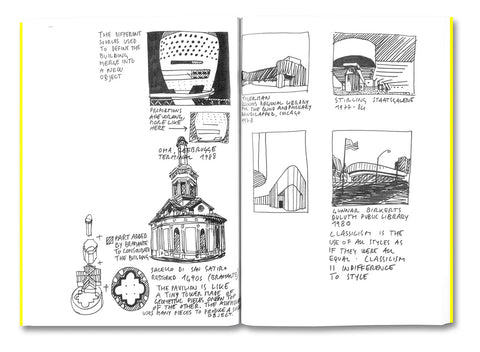 THE DIFFERENT
SOURCES USED
TO DEFINE THE
BUILDING
MERGE INTO
A NEW
OBJECT
PROPORTIONS
ARE WRONG,
MORE LIKE
HERE
OMA, ZEEBRUGGE
TERMINAL 1988
PART ADDED
BY BRAMANTE
TO CONSOLIDATE
THE BUILDING
SACELLO DI SAN SATIRO
RESTORED 1490s (BRAMANTE)
THE PAVILION IS LIKE
A TINY TOWER MADE OF
GEOMETRIC PIECES ON TOP
OF THE OTHER. THE
MANY PIECES TO PRODUCE A
OBJECT.
TIGERMAN
REGIONAL LIBRARY
FOR THE BLIND AND PHYSICALLY
HANDICAPPED, CHICAGO
1978
STIRLING STAATSGALERIE
1977-84
GUNNAR BIRKERTS
DULUTH PUBLIC LIBRARY
1980
CLASSICISM IS THE
USE OF ALL STYLES AS
IF THEY WERE ALL
EQUAL. CLASSICISM
IS INDIFFERENCE
TO STYLE